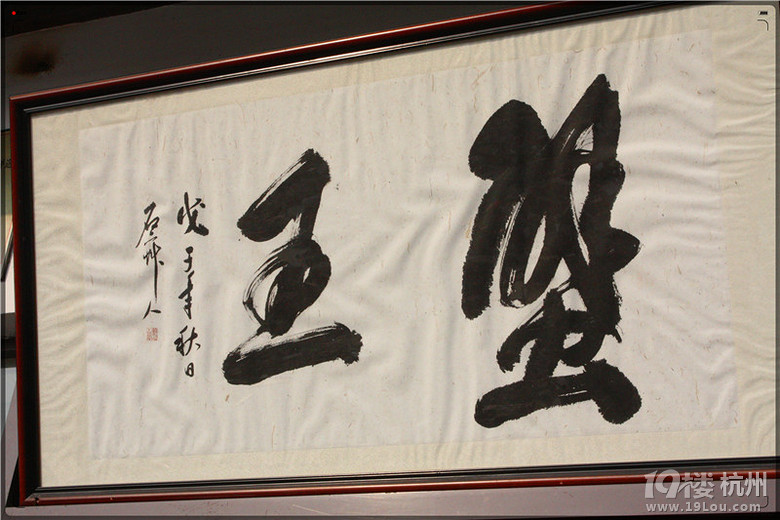 蟹王
戊子年秋日
石艸人
19楼 杭州
www.19Lou.com